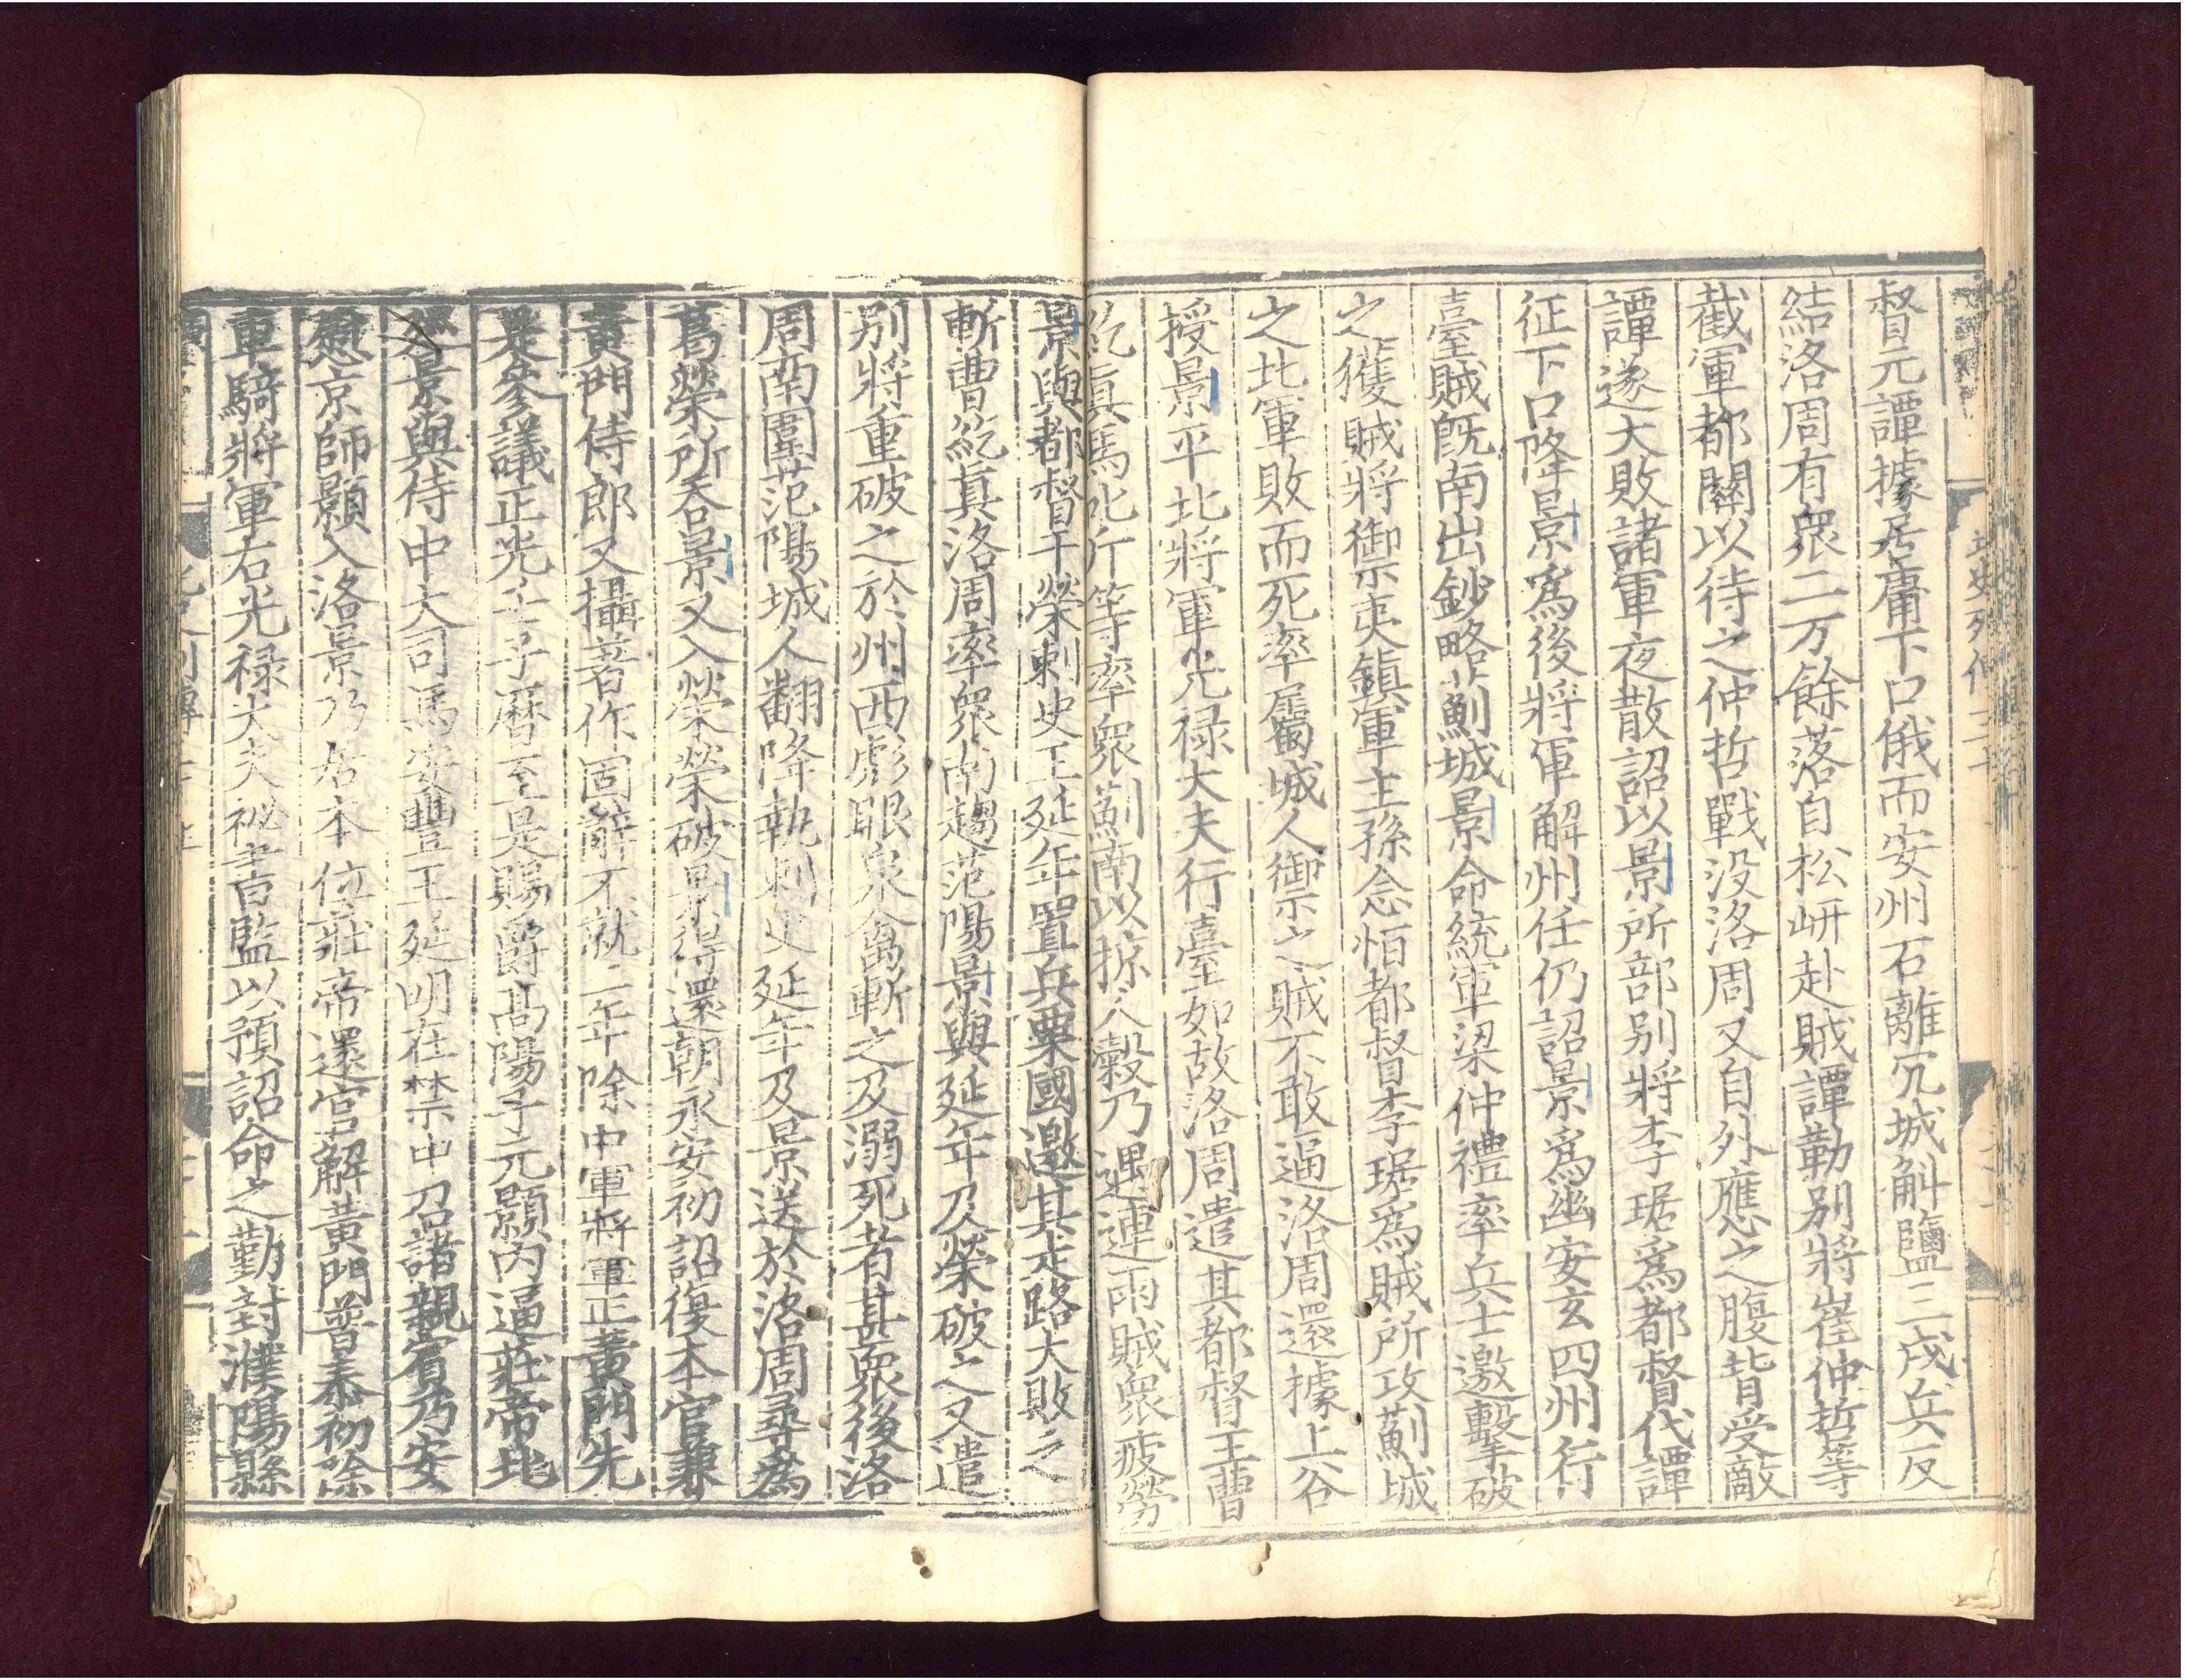 督元譚據居庸下口俄而安州石離冗城斛鹽三戍兵反
結洛周有衆二万餘落自松岍赴賊譚勒别將崔仲哲等
截軍都關以待之仲哲戰没洛周又自外應之腹背受敵
譚遂大敗諸軍夜散詔以景所部别將李琚爲都督代譚
征下口降景爲後將軍解州任仍詔景爲幽安玄四州行
臺賊旣南出鈔略薊城景命統軍梁仲禮率兵士邀擊破
之獲賊將御夷鎮軍主孫念恒都督李琚爲賊所攻薊城
之北軍敗而死率屬城人禦之賊不敢逼洛周還據上谷
授景平北將軍光禄大夫行臺如故洛周遣其都督王曹
紇眞馬叱斤等率衆薊南以掠人穀乃遇連雨賊衆疲勞
景與都督于榮刺史王延年置兵粟國邀其走路大敗之
斬曹紇眞洛周率衆南趨范陽景與延年及榮破之又遣
别將重破之於州西彪眼泉禽斬之及溺死者甚衆後洛
周南圍范陽城人翻降執刺史延年及景送於洛周尋爲
葛榮所吞景又入榮榮破景得還朝永安初詔復本官兼
黄門侍郎又攝著作固辭不就二年除中軍將軍正黄門先
是參議正光壬子曆至是賜爵高陽子元顥内逼莊帝北
巡景與侍中大司馬安豐王延明在禁中召諸親賓乃安
慰京師顥入洛景乃居本位莊帝還宫解黄門普泰初除
車騎將軍右光禄大夫祕書監以預詔命之勤封濮陽縣